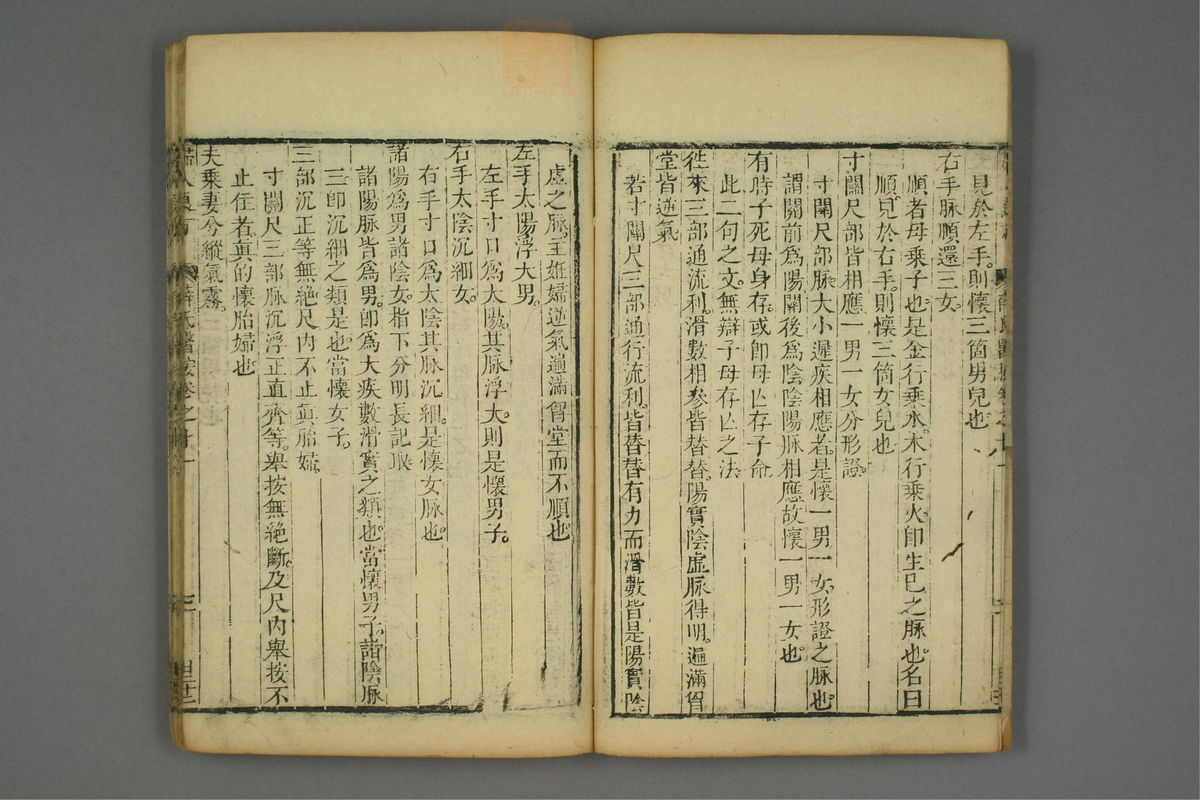 見於左手。則懷三箇男兒也
右手脉順還三女。
順者母乗子也。是金行乗水。木行乗火。即生巳之脉也。名曰
順。見於右手。則懷三箇女兒也
寸關尺部皆相應一男一女分形證。
寸關尺部脉。大小遲疾相應者。是懷一男一女。形證之脉也。
謂關前爲陽。關後爲陰。陰陽脉相應。故懷一男一女也。
有時子死母身存。或即母亾存子命。
此二句之文。無辯子母存亾之法
徃來三部通流利。滑數相參皆替替。陽實陰虛脉得明。遍滿胷
堂皆逆氣
若寸關尺三部通行流利。皆替替有力而滑數。皆是陽實陰
虛之脉。主姙婦逆氣遍滿胷堂而不順也
左手太陽浮大男。
左手寸口爲太陽。其脉浮大。則是懷男子。
右手太陰沉細女。
右手寸口爲太陰。其脉沉細。是懷女脉也。
諸陽爲男諸陰女。指下分明長記取
諸陽脉皆爲男。即爲大疾數滑實之類也。當懷男子。諸陰脉
三即沉細之類是也。當懷女子。
三部沉正等無絶。尺内不止真胎婦。
寸關尺三部脉。沉浮正直齊等。舉按無絶斷。及尺内舉按不
止住者。真的懷胎婦也。
夫乗妻兮縱氣霧。
婦人良方
薛氏醫按卷之廿一
三